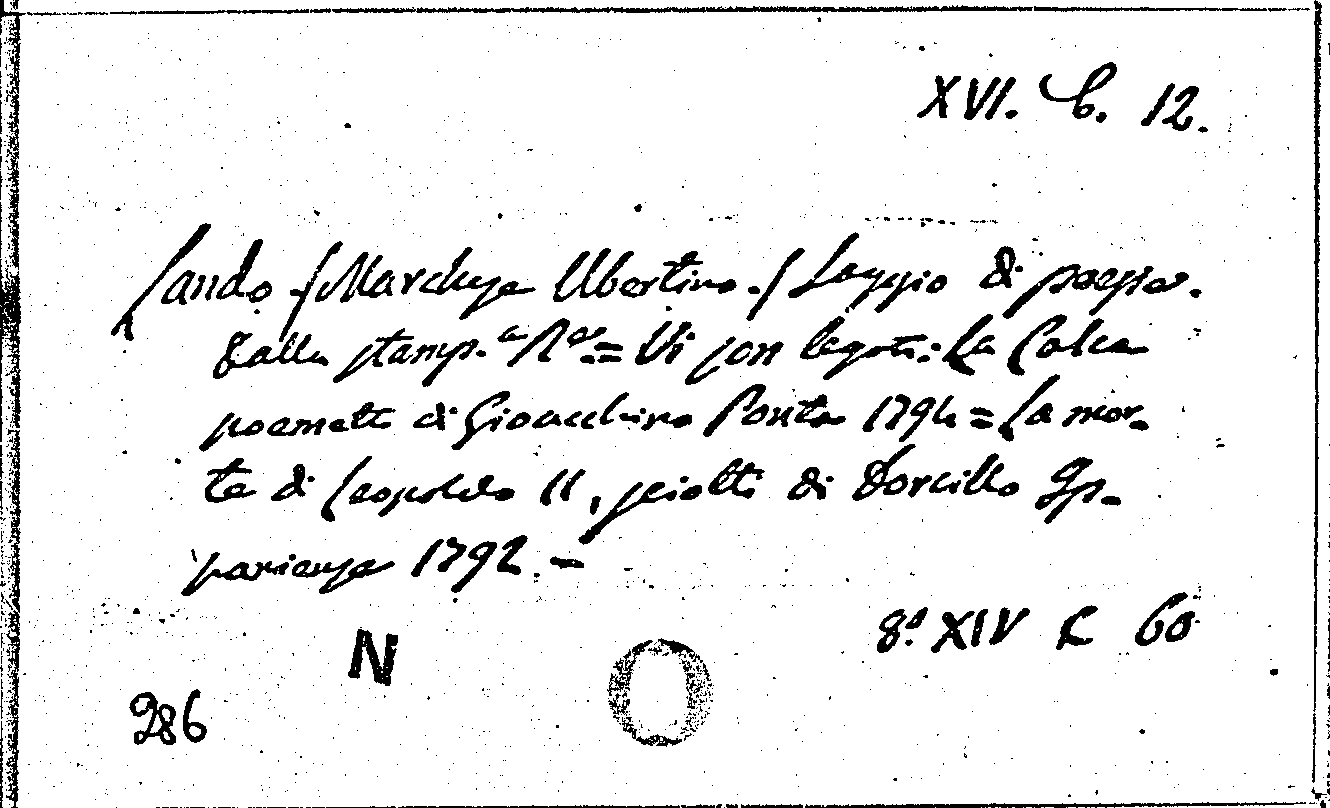 XVI. C. 12.
Lando (Marchese Ubertino.) Saggio di poesie.
Dalla stamp.a R.a = Vi son legati: La Colca
poemetto di Gioacchino Ponta 1794 = La mor-
te di Leopoldo II, sciolti di Dorcillo Sp.
parienze 1792 -
8.o XIV 60
N
286